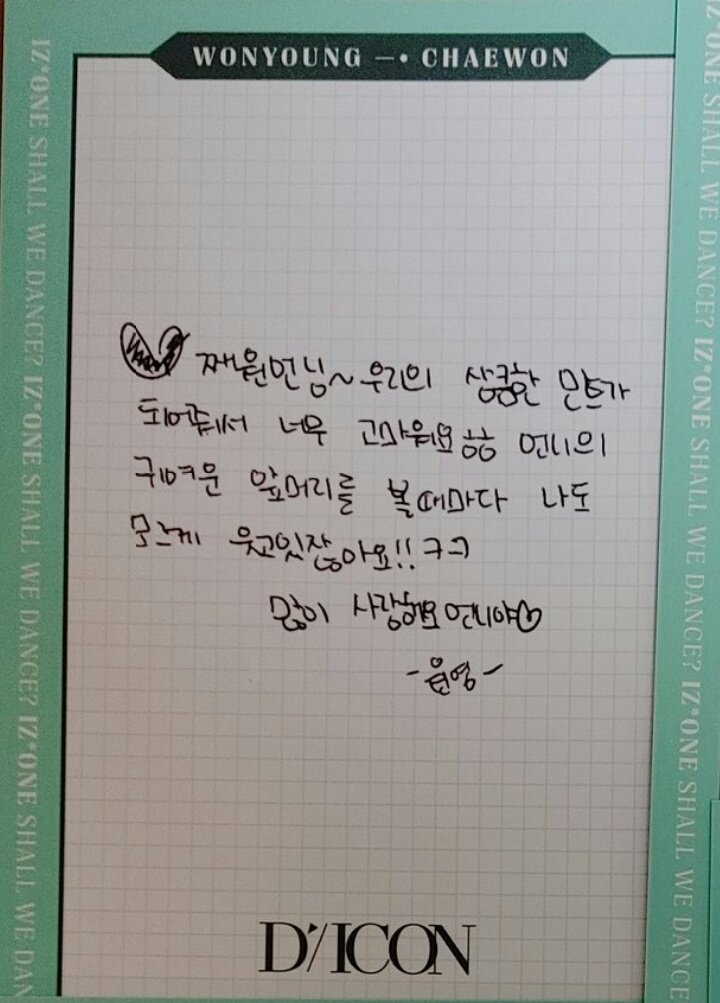 WONYOUNG —• CHAEWON
째원언님~우리의 상큼한 민트가
되어줘서 너무 고마워요 흠흠 언니의
구여운 앞머리를 볼때마다 나도
모르게 웃고있잖아요!! ㅋㅋ
많이 사랑해요 언니야♡
-원영-
D'/ICON
IZ*ONE SHALL WE DANCE? IZ*ONE SHALL WE DANCE? IZ*ONE SHALL WE DAN
IZ*ONE SHALL WE DANCE? IZ*ONE SHALL WE DANCE? IZ*ONE SHALL WE DANCE